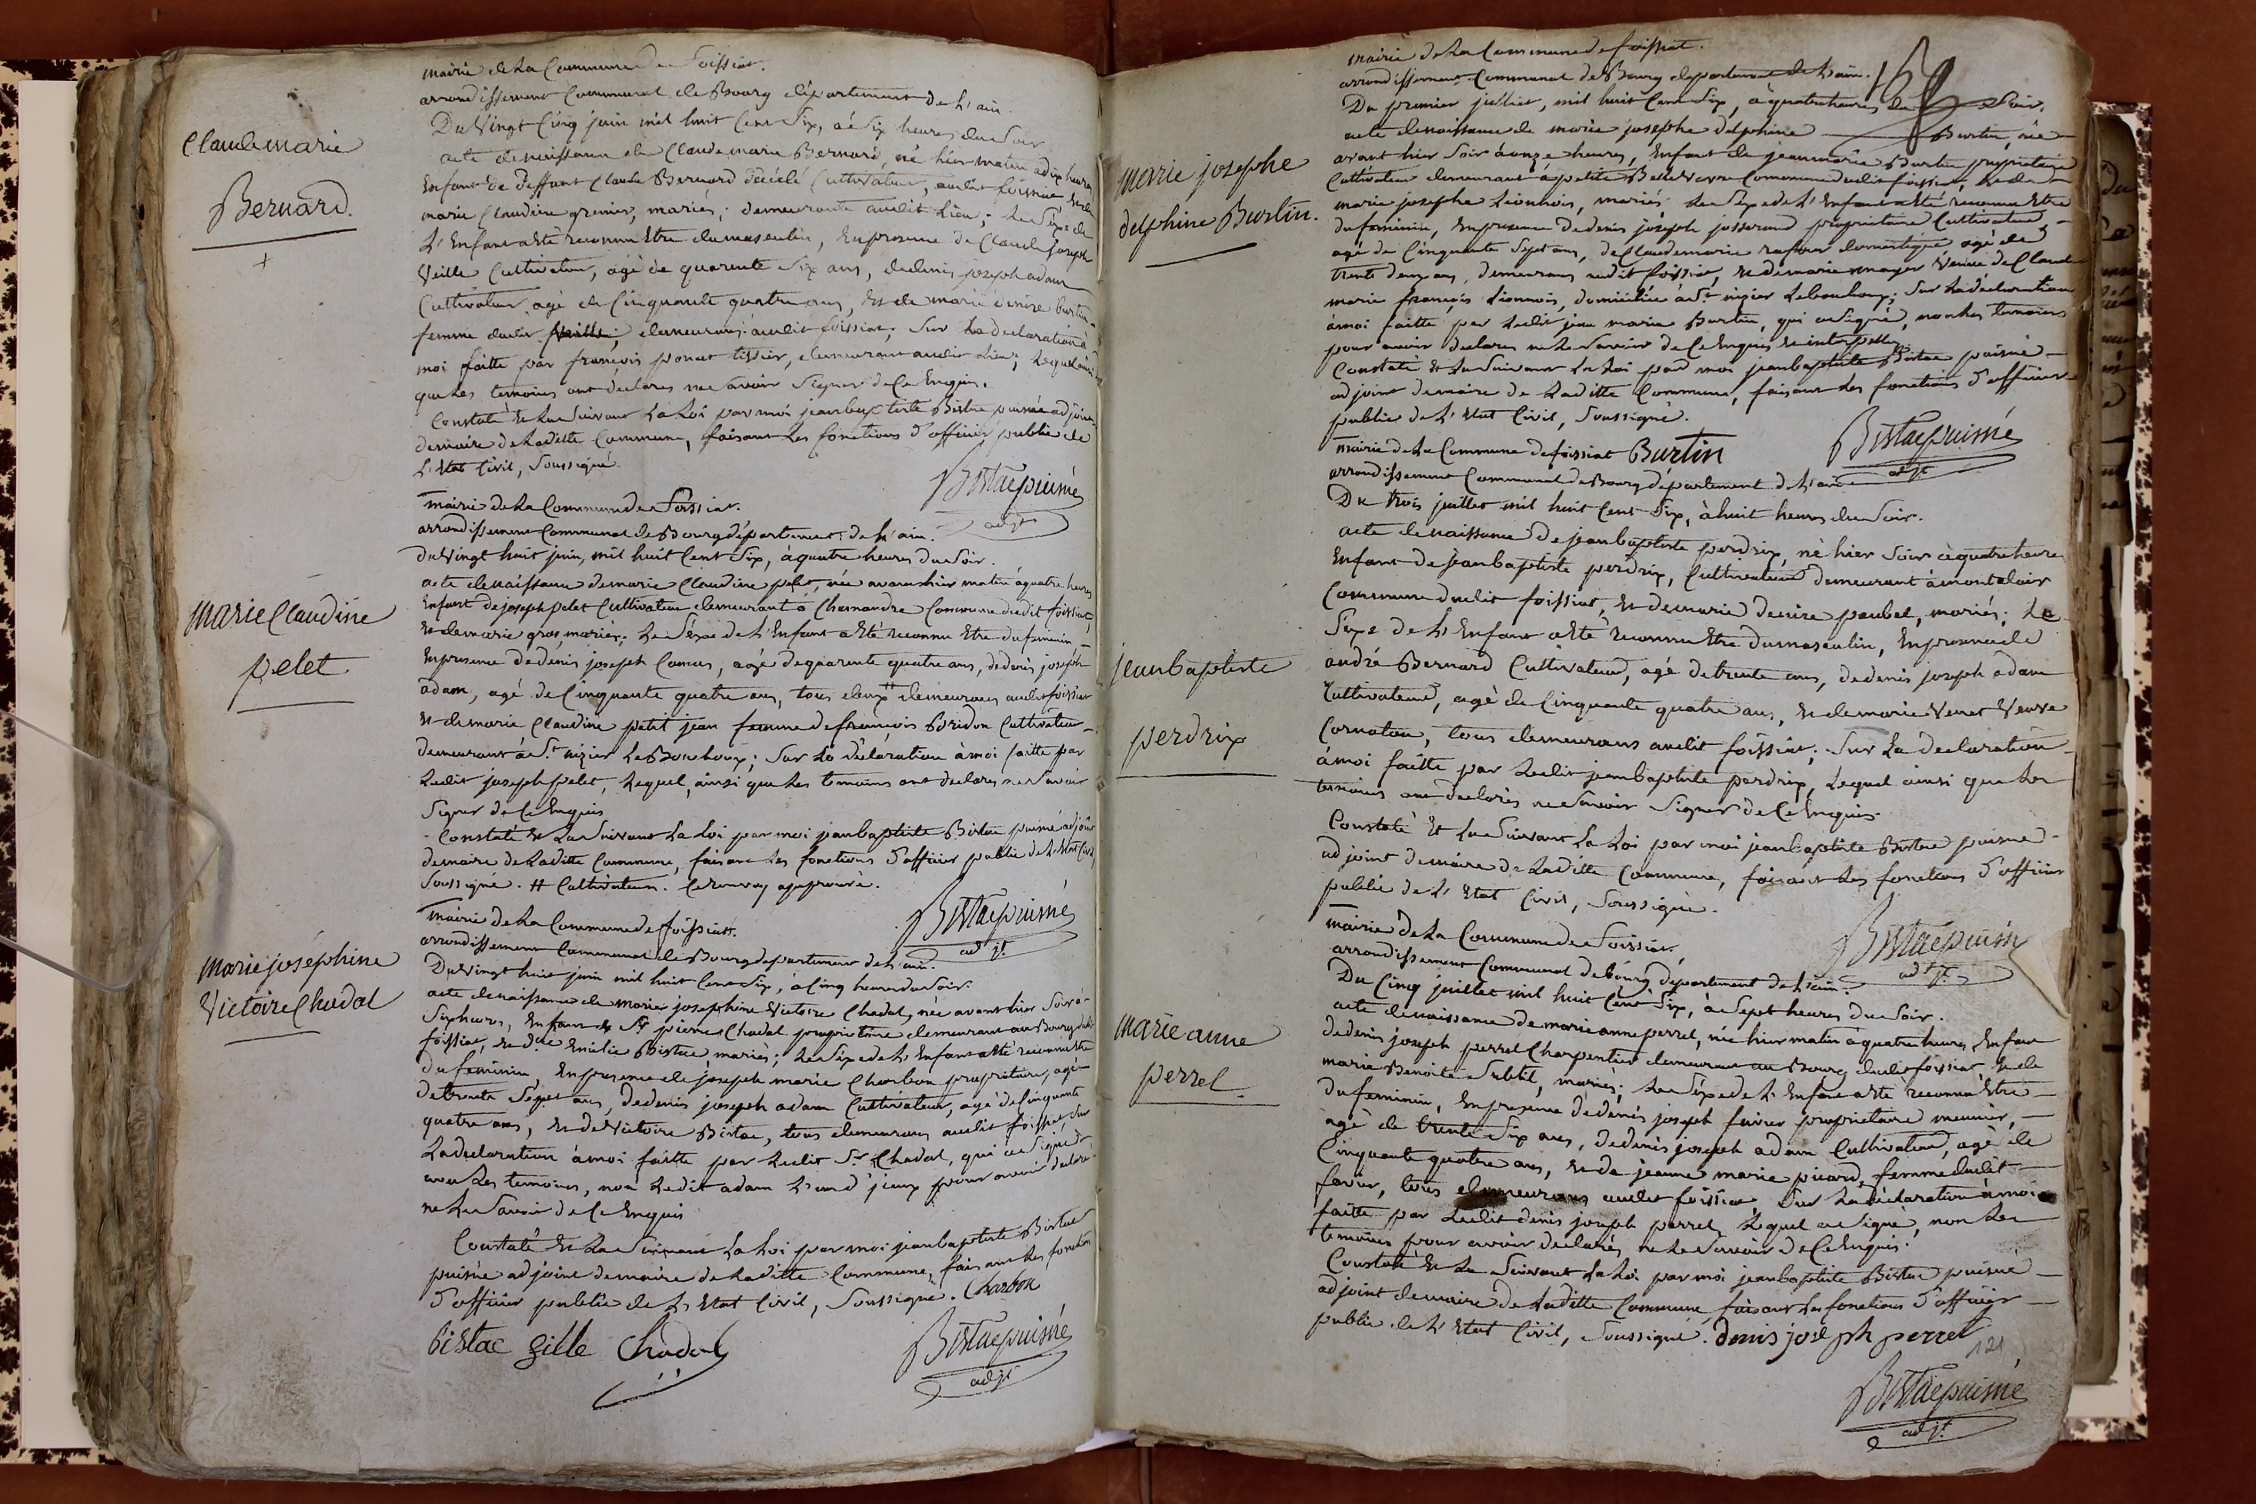 mairie de La Commune de foissiat.
arrondissement Communal de Bourg département de L'ain.
Du Vingt Cinq juin mil huit Cent Six, à Six heures du Soir
Claude marie
Bernard.
acte de naissance de Claude marie Bernard, né hier matin à dix heures
Enfant de deffunt Claude Bernard décédé Cultivateur, audit foissiat et de
marie Claudine grenier, mariés; demeurante audit Lieu; Le Sexe de
L'Enfant a été reconnu Etre du masculin, En presence de Claude joseph
Veille Cultivateur, agé de quarente Six ans, de denis joseph adam
Cultivateur agé de Cinquante quatre ans, et de marie denise burtin
femme dudit Veille; demeurans audit foissiat; Sur La declaration à
moi faitte par françois ponat tissier, demeurant audit Lieu; Lequel ainsi
que Les temoins ont declarés ne Savoir Signer de Ce Enquis.
Constaté et Lu Suivant La Loi par moi jean baptiste Bistac puisné adjoint
de maire de Laditte Commune, faisant Les fonctions d'officier public de
L'Etat Civil, Soussigné.
Bistac puisné
adjt
mairie de La Commune de foissiat.
arrondissement Communal de Bourg département de L'ain.
du Vingt huit juin, mil huit Cent Six, à quatre heures du Soir.
Marie Claudine
pelet
acte de naissance de marie Claudine pelet, née avant hier matin à quatre heures
Enfant de joseph pelet Cultivateur demeurant à Chamandre Commune dudit foissiat,
et de marie gros, mariés; Le Sexe de L'Enfant a été reconnu Etre du feminin
En presence de denis joseph Camus, agé de quarente quatre ans, de denis joseph
adam, agé de Cinquante quatre ans, tous deux # demeurans audit foissiat
et de marie Claudine petit jean femme de françois Bridon Cultivateur
demeurant à St. nizier Le Bouchoux; Sur La déclaration à moi faitte par
Ledit joseph pelet, Lequel, ainsi que Les temoins ont declarés ne Savoir
Signer de Ce Enquis
Constaté et Lu Suivant La Loi par moi jean baptiste Bistac puisné adjoint
de maire de Laditte Commune, faisant Les fonctions d'officier public de L'Etat Civil,
Soussigné. # Cultivateurs. Ce renvoy approuvé.
Bistac puisné
adjt
mairie de La Commune de foissiat.
arrondissement Communal de Bourg département de L'ain.
Du Vingt huit juin mil huit Cent Six, à Cinq heures du Soir.
Marie joséphine
Victoire Chadal
acte de naissance de marie josephine Victoire Chadal, née avant hier Soir à
Six heures, Enfant de Sr. pierre Chadal proprietaire demeurant au Bourg dudit
foissiat, et de Emilie Bistac mariés; Le Sexe de L'Enfant a été reconnu Etre
du feminin, En presence de joseph marie Charbon proprietaire, agé
de trente Sept ans, de denis joseph adam Cultivateur, agé de Cinquante
quatre ans, et de Victoire Bistac, tous demeurans audit foissiat, Sur
La declaration à moi faitte par Ledit Sr. Chadal, qui a Signé
avec Les temoins, non Ledit adam L'un d'jceux pour avoir declaré
ne Le Savoir de Ce Enquis
Constaté et Lu Suivant La Loi par moi jean baptiste Bistac
puisné adjoint de maire de Laditte Commune, faisant Les fonctions
d'officier public de L'Etat Civil, Soussigné. Charbon
Bistac gille Chadal
Bistac puisné
adjt
mairie de La Commune de foissiat.
arrondissement Communal de Bourg département de L'ain.
Du premier juillet, mil huit Cent Six, à quatre heures du Soir.
Marie josephe
delphine Burtin.
acte de naissance de marie josephe delphine Burtin, née
avant hier Soir à onze heures, Enfant de jean marie Burtin proprietaire
Cultivateur demeurant à petite Commune dudit foissiat, et de
marie josephe Lionnois, mariés. Le Sexe de L'Enfant a été reconnu Etre
du feminin, En presence de denis joseph josserand proprietaire Cultivateur
agé de Cinquante Sept ans, de Claude marie domestique agé de
trente deux ans, demeurans audit foissiat, et de marie mayer Veuve de Claude
marie françois Lionnois, domiciliée à St. nizier Lebouchoux; Sur La déclaration
à moi faitte par Ledit jean marie Burtin, qui a Signé, non Les temoins
pour avoir declarés ne Le Savoir de Ce Enquis et interpellés
Constaté et Lu Suivant La Loi par moi jean baptiste Bistac puisné
adjoint de maire de Laditte Commune, faisant Les fonctions d'officier
public de L'Etat Civil, Soussigné.
Burtin
Bistac puisné
adjt
mairie de La Commune de foissiat
arrondissement Communal de Bourg département de L'ain
Du trois juillet mil huit Cent Six, à huit heures du Soir.
jean baptiste
perdrix
acte de naissance de jean baptiste perdrix, né hier Soir à quatre heures
Enfant de jean baptiste perdrix, Cultivateur demeurant à montaloir
Commune dudit foissiat, et de marie denise paubel, mariés; Le
Sexe de L'Enfant a été reconnu Etre du masculin, En presence de
andré Bernard Cultivateur, agé de trente ans, de denis joseph adam
Cultivateur, agé de Cinquante quatre ans, et de marie Venet Veuve
Cornaton, tous demeurans audit foissiat; Sur La declaration
à moi faitte par Ledit jean baptiste perdrix, Lequel ainsi que Les
temoins ont declarés ne Savoir Signer de Ce Enquis.
Constaté Et Lu Suivant La Loi par moi jean baptiste Bistac puisné
adjoint de maire de Laditte Commune, faisant Les fonctions d'officier
public de L'Etat Civil, Soussigné.
Bistac puisné
adjt
mairie de La Commune de foissiat.
arrondissement Communal de bourg département de L'ain.
Du Cinq juillet mil huit Cent Six, à Sept heures du Soir.
Marie anne
perrel.
acte de naissance de marie anne perrel, née hier matin à quatre heures, Enfant
de denis joseph perrel Charpentier demeurant au Bourg dudit foissiat, et de
marie Benoite Subtil, mariés; Le Sexe de L'Enfant a été reconnu Etre
du feminin, En presence de denis joseph favier proprietaire meunier,
agé de trente Six ans, de denis joseph adam Cultivateur, agé de
Cinquante quatre ans, et de jeanne marie picard, femme dudit
favier, tous demeurans audit foissiat, Sur La déclaration à moi
faitte par Ledit denis joseph perrel Lequel a Signé, non Les
temoins pour avoir declarés ne Le Savoir de Ce Enquis.
Constaté et Lu Suivant La Loi par moi jean baptiste Bistac puisné
adjoint de maire de Laditte Commune faisant Les fonctions d'officier
public de L'Etat Civil, Soussigné. denis joseph perrel
121
Bistac puisné
adjt